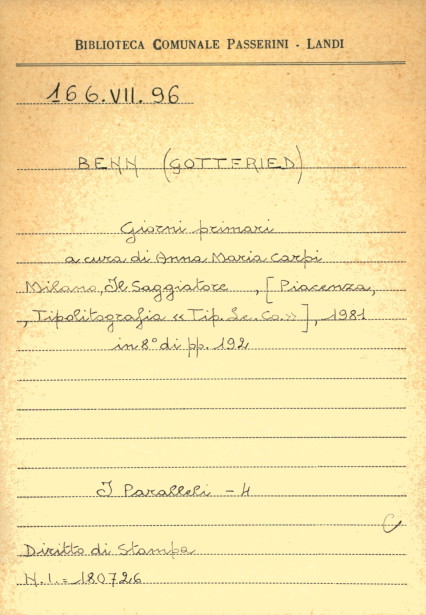 BIBLIOTECA COMUNALE PASSERINI - LANDI
166.VII.96
BENN (GOTTFRIED)
Giorni primari
a cura di Anna Maria Carpi
Milano, Il Saggiatore , [Piacenza,
, Tipolitografia «Tip. Le. Co.»], 1981
in 8° di pp. 192
I Paralleli - 4
C
Diritto di Stampa
N.I.= 180726